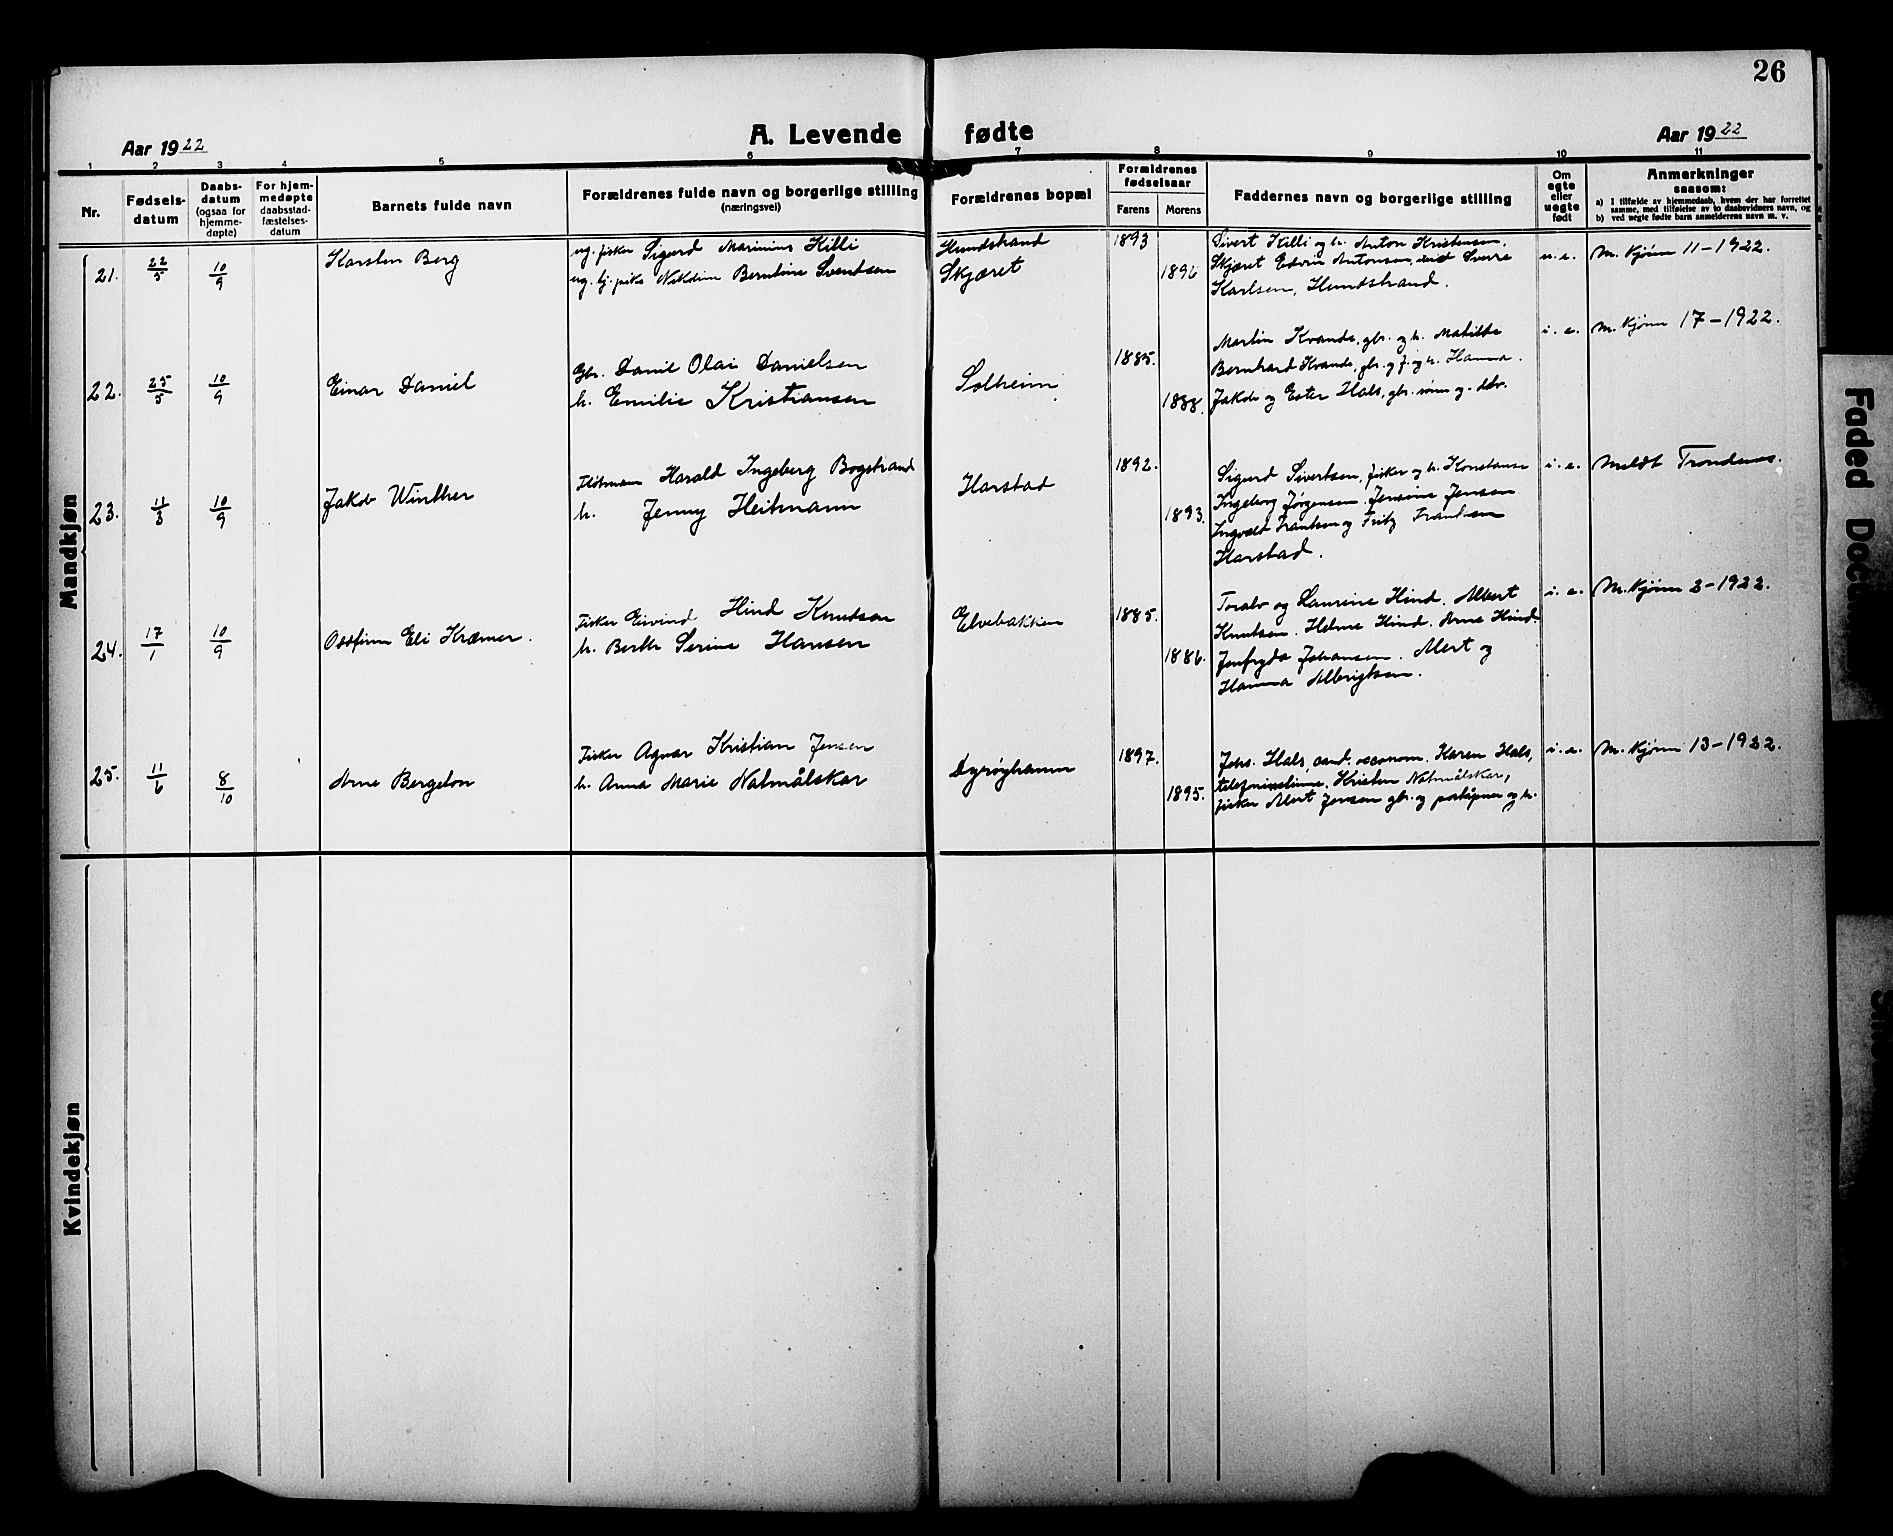 26
A. Levende fødte
Aar 1922
Aar 1922
1 2 3 4 5 6 7 8 9 10 11
Nr.
Fødsels-
datum
Daabs-
datum
(ogsaa for
hjemme-
døpte)
For hjem-
medøpte
daabsstad-
fæstelses-
datum
Barnets fulde navn
Forældrenes fulde navn og borgerlige stilling
(næringsvei)
Forældrenes bopæl
Forældrenes
fødselsaar
Farens
Morens
Faddernes navn og borgerlige stilling
Om
egte
eller
uegte
født
Anmerkninger
saasom:
a) I tilfælde av hjemmedaab, hvem der har forrettet
samme, med tilføielse av to daabsvidners navn, og
b) ved uegte fødte barn anmelderens navn m. v.
Mandkjøn
21.
22/5
10/9
Karsten Berg
ug. fisker Sigurd Marinius Killi
ug. tj. pike Berntine Svendsen
Hundstrand
Skjæret
1893
1896
Sivert Killi og h. Anton Kristensen.
Skjæret Edvin Antonsen, Sverre
Karlsen, Hundstrand.
u. e.
M. kjønn 11-1922.
22.
25/5
10/9
Einar Daniel
Gbr. Daniel Olai Danielsen
h. Emilie Kristiansen
Solheim
1885.
1888.
Martin Kvande, gbr. og h. Matilde
Bernhard Kvande, gbr. og f. og h. Hanna.
Jakob og Ester Hals, gbr. sønn og dtr.
i. e.
M. kjønn 17-1922.
23.
11/3
10/9
Jakob Winther
Harald Ingeberg Bogstrand
h. Jenny Heitmann
Harstad
1892.
1893.
Sigurd Sivertsen, fisker og h. Konstanse
Ingeborg Jørgensen, Jensine Jensen
Ingvald Frantsen og Fritz Frantsen
Harstad.
i. e.
Meldt Trondenes.
24.
17/1
10/9
Oddfinn Eli Kræmer.
Fisker Eivind Hind Knutsen
h. Berth Serine Hansen
Elvebakken
1885.
1886.
Toralv og Laurine Hind. Albert
Knutsen. Helme Hind. Arne Hind.
Johansen. Alert og
Hanna Albrigtsen.
i. e.
M. kjønn 2-1922.
25.
11/6
8/10
Arne Bergeton
Fisker Agnar Kristian Jensen
h. Anna Marie Natmålskar
Dyrøyhamn
1897.
1895.
Johs. Hals, cand. oeconom. Karen Hals,
telefonistinne, Kristen Natmålskar,
fisker Alert Jensen gbr. og poståpner og h.
i. e.
M. kjønn 13-1922.
Kvindekjøn
Faded